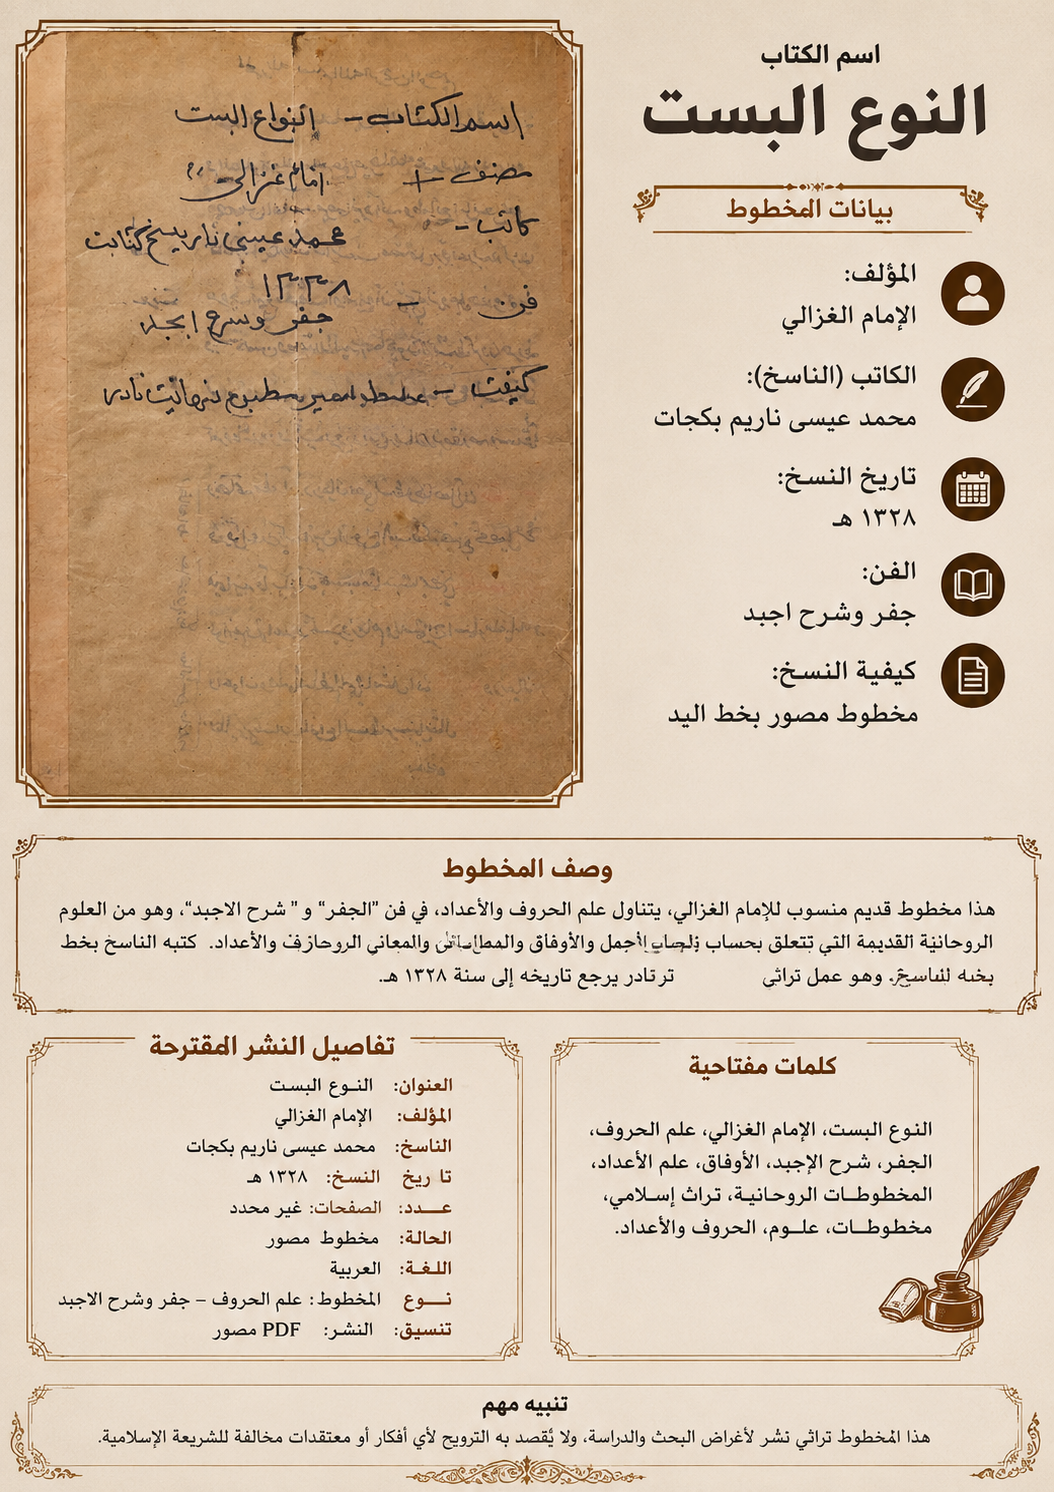 اسم الكتاب
النوع البست
بيانات المخطوط
المؤلف:
الإمام الغزالي
الكاتب (الناسخ):
محمد عيسى ناريم بكجات
تاريخ النسخ:
١٣٢٨ هـ
الفن:
جفر وشرح اجبد
كيفية النسخ:
مخطوط مصور بخط اليد
اسم الكتاب - النواع البست
مصنف - امام غزالی
کاتب - محمد عیسی تاریخ کتابت
١٣٣٨
فن - جفر وسرح ابجد
کیفیت - غیر مطبوع نهایت نادر
وصف المخطوط
هذا مخطوط قديم منسوب للإمام الغزالي، يتناول علم الحروف والأعداد، في فن "الجفر" و " شرح الاجبد"، وهو من العلوم
الروحانية القديمة التي تتعلق بحساب الجمل والأوفاق والمعاني والأعداد. كتبه الناسخ بخط
وهو عمل تراثي نادر يرجع تاريخه إلى سنة ١٣٢٨ هـ.
كلمات مفتاحية
النوع البست، الإمام الغزالي، علم الحروف،
الجفر، شرح الإجبد، الأوفاق، علم الأعداد،
المخطوطات الروحانية، تراث إسلامي،
مخطوطات، علوم، الحروف والأعداد.
تفاصيل النشر المقترحة
العنوان: النوع البست
المؤلف: الإمام الغزالي
الناسخ: محمد عيسى ناريم بكجات
تا ريخ النسخ: ١٣٢٨ هـ
عدد: الصفحات: غير محدد
الحالة: مخطوط مصور
اللغة: العربية
نوع المخطوط: علم الحروف – جفر وشرح الاجبد
تنسيق: النشر: PDF مصور
تنبيه مهم
هذا المخطوط تراثي نشر لأغراض البحث والدراسة، ولا يُقصد به الترويج لأي أفكار أو معتقدات مخالفة للشريعة الإسلامية.